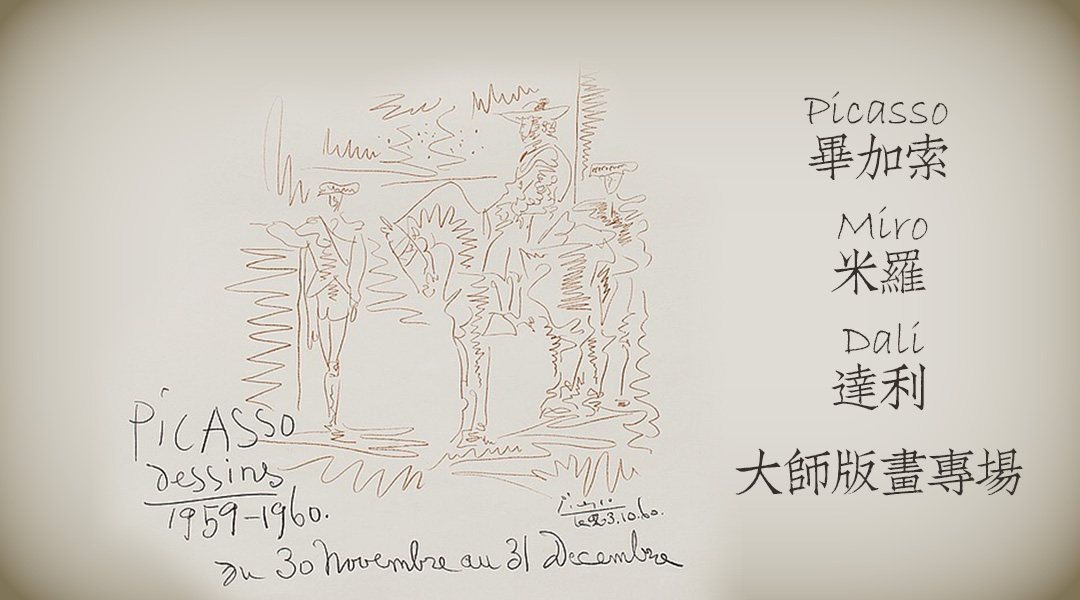 PiCASSO
dessins
1959-1960.
du 30 Novembre au 31 Decembre
Picasso
le 23.10.60.
Picasso
畢加索
Miro
米羅
Dali
達利
大師版畫專場